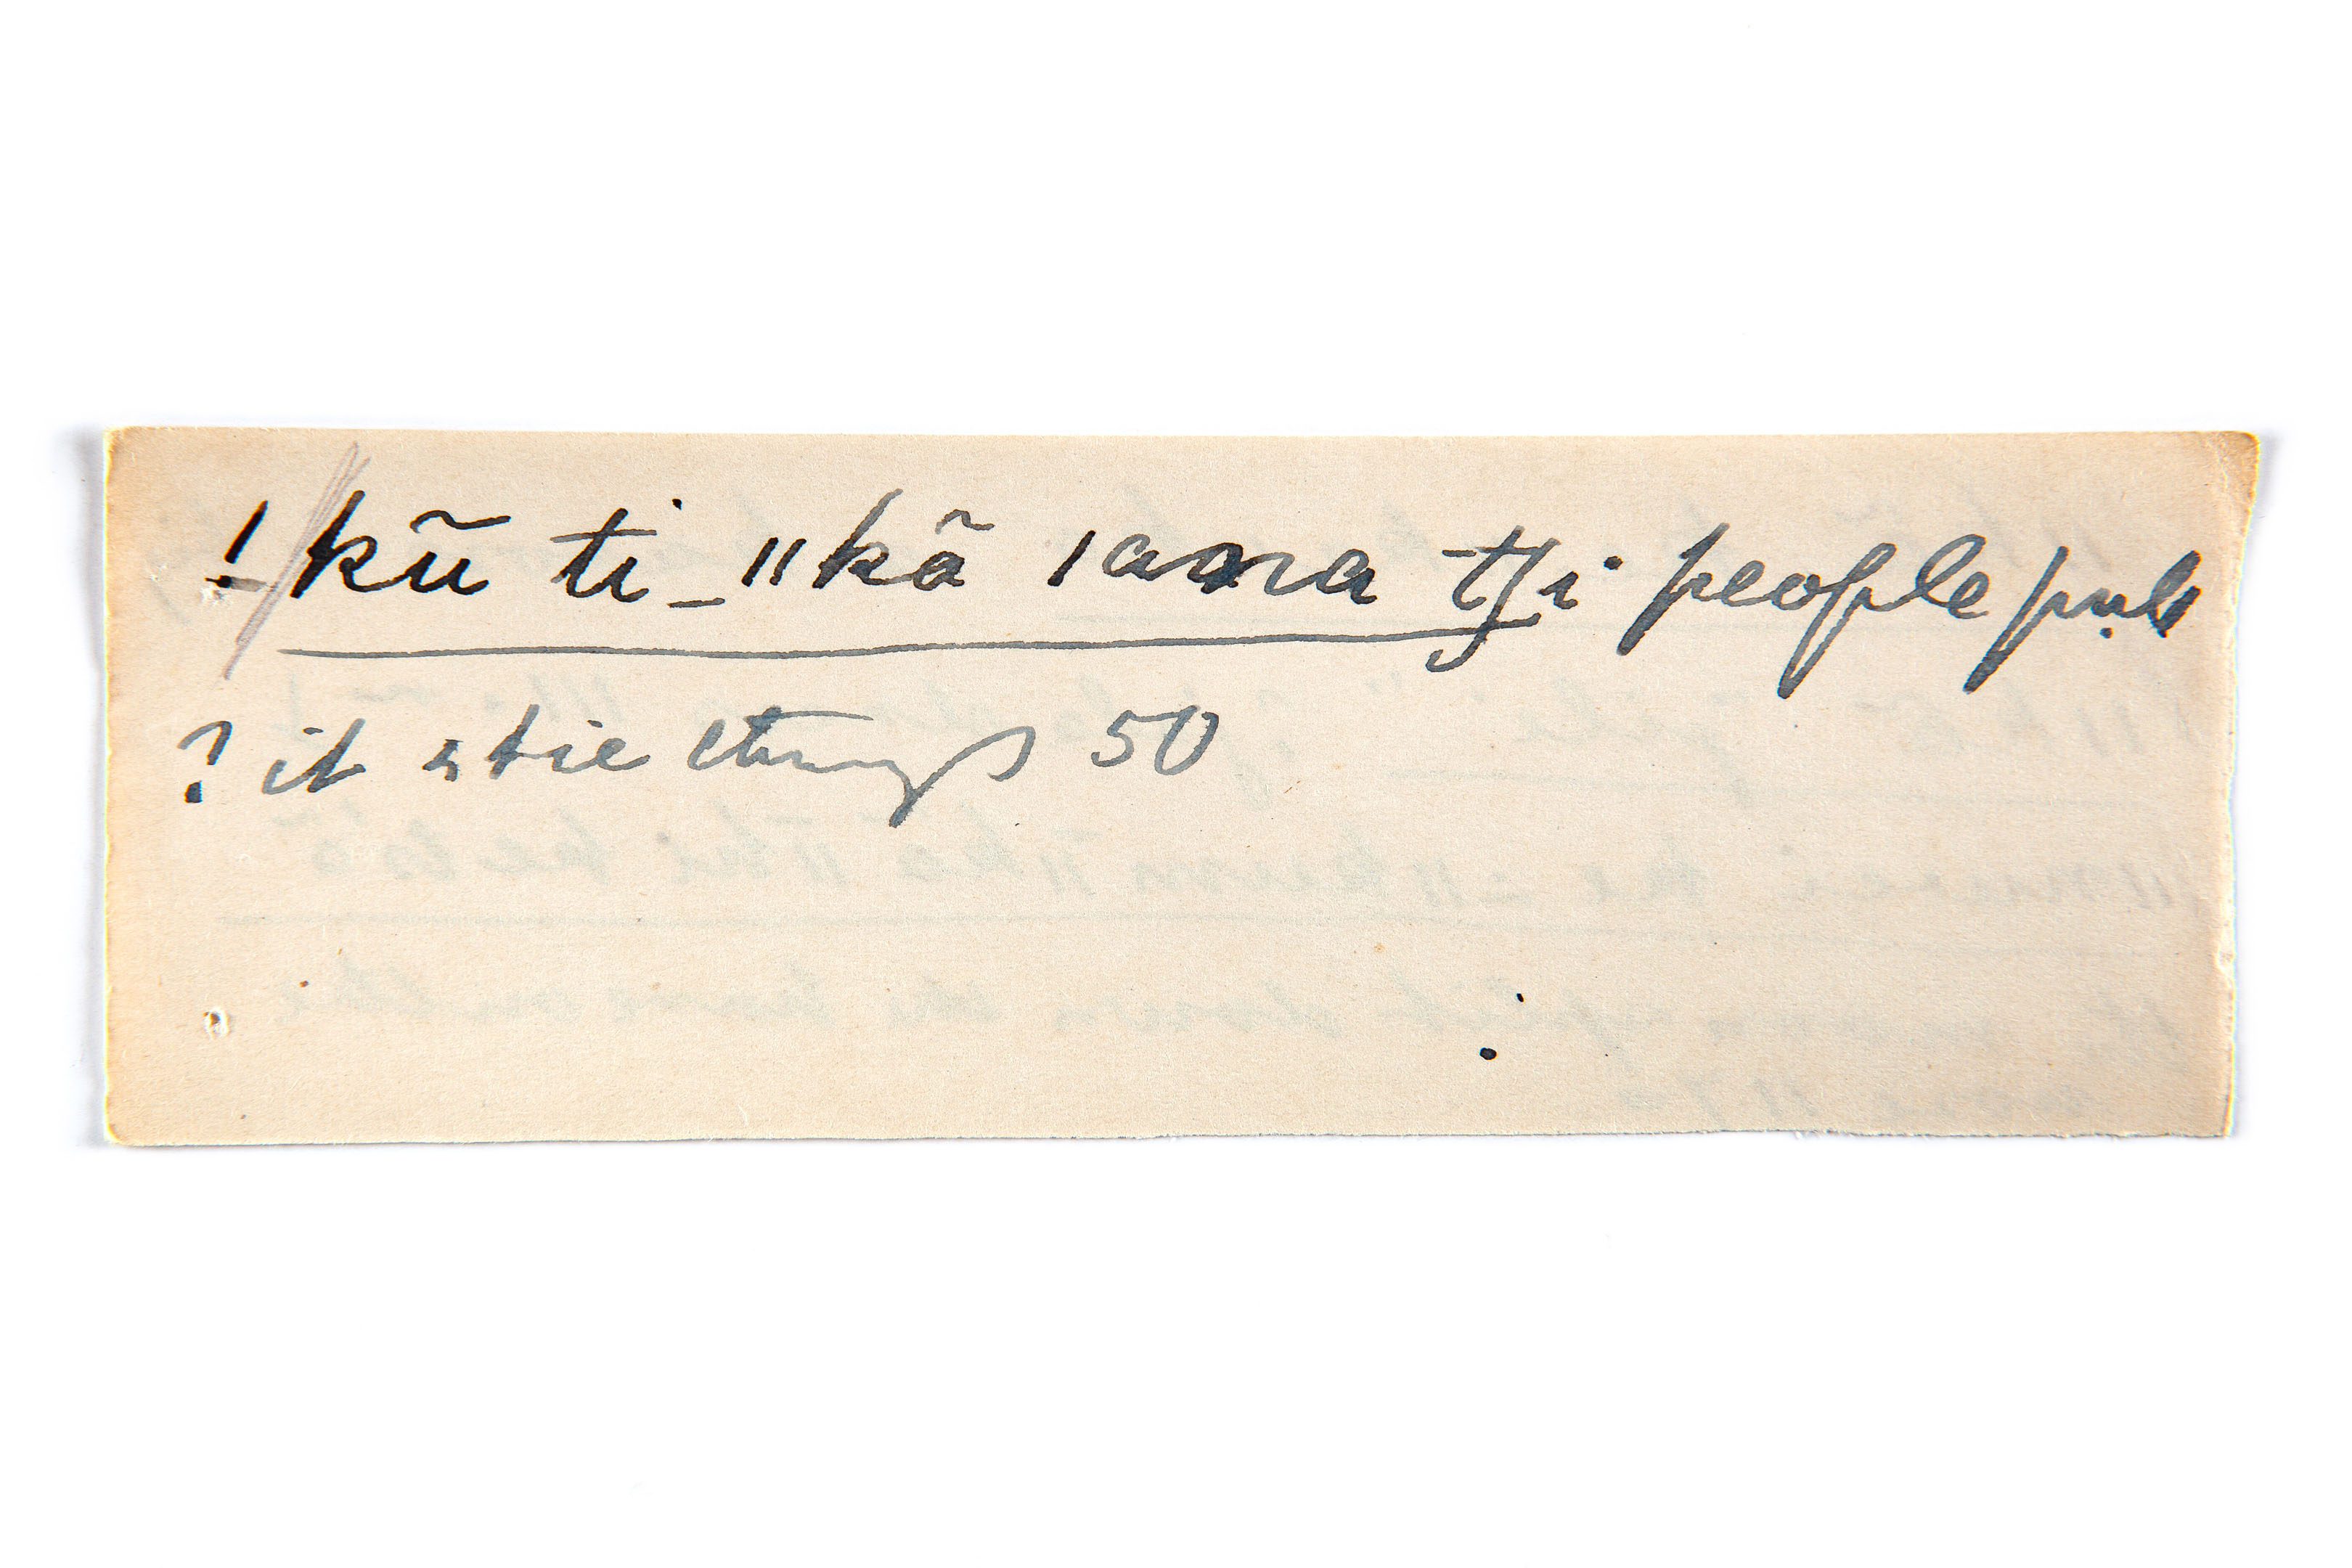 ! kũ ti _ ǁkã ǀana tʃi people put
? it stie things 50